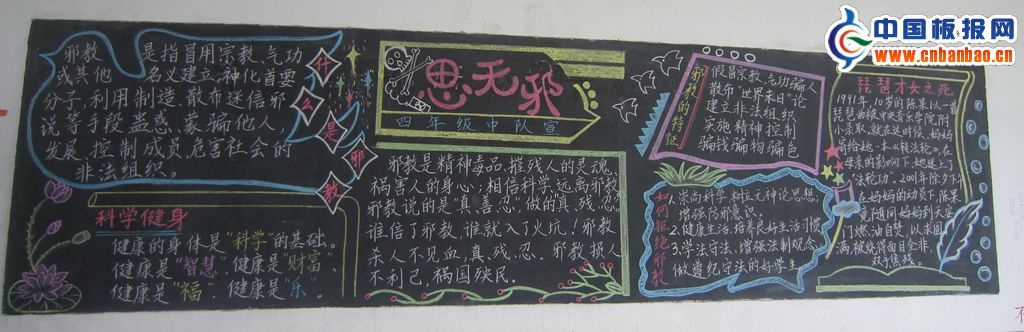 中国板报网
www.cnbanbao.cn
什么是邪教
邪教 是指冒用宗教、气功
或其他 名义建立、神化首要
分子,利用制造、散布迷信邪
说等手段蛊惑、蒙骗他人,
发展、控制成员,危害社会的
非法组织。
科学健身
健康的身体是“科学”的基础。
健康是“智慧”、健康是“财富”、
健康是“福”、健康是“乐”。
思无邪
四年级中队宣
邪教是精神毒品,摧残人的灵魂,
祸害人的身心,相信科学,远离邪教
邪教说的是“真、善、忍”做的真、残、忍
谁信了邪教,谁就入了火坑!邪教
杀人不见血,真、残、忍。邪教报人
不利己,祸国殃民。
邪教的特征
假冒宗教、气功骗人
散布“世界末日”论
建立非法组织
实施精神控制
骗钱骗物骗色
如何拒绝邪教
1.崇尚科学,树立无神论思想,
增强防邪意识。
2.健康生活,培养良好生活习惯
3.学法守法,增强法制观念,
做遵纪守法的好学生
琵琶才女之死
1991年,10岁的陈果以一首
琵琶曲被中央音乐学院附
小录取,就在这时候,妈妈
寄给她一本《转法轮》,在
母亲的影响下,她迷上了
“法轮功”。2001年除夕下
妈妈的动员下,陈果
竟随同妈妈到天安
门燃油自焚,以求圆
满,被烧得面目全非,
双手焦残。